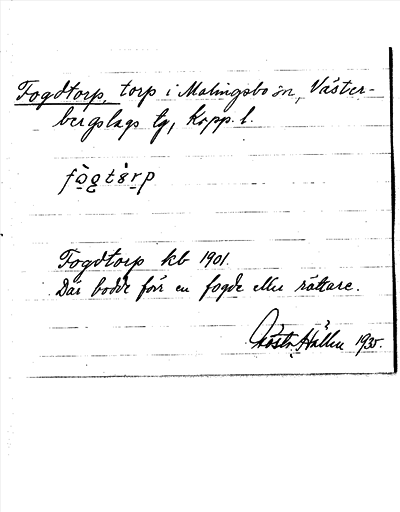 Fogdtorp, torp i Malingsbo sn, Väster-
bergslags tg, Kopp. l.
fògtòrp
Fogdtorp kb 1901.
Där bodde förr en fogde eller rättare.
Hållen 1935.